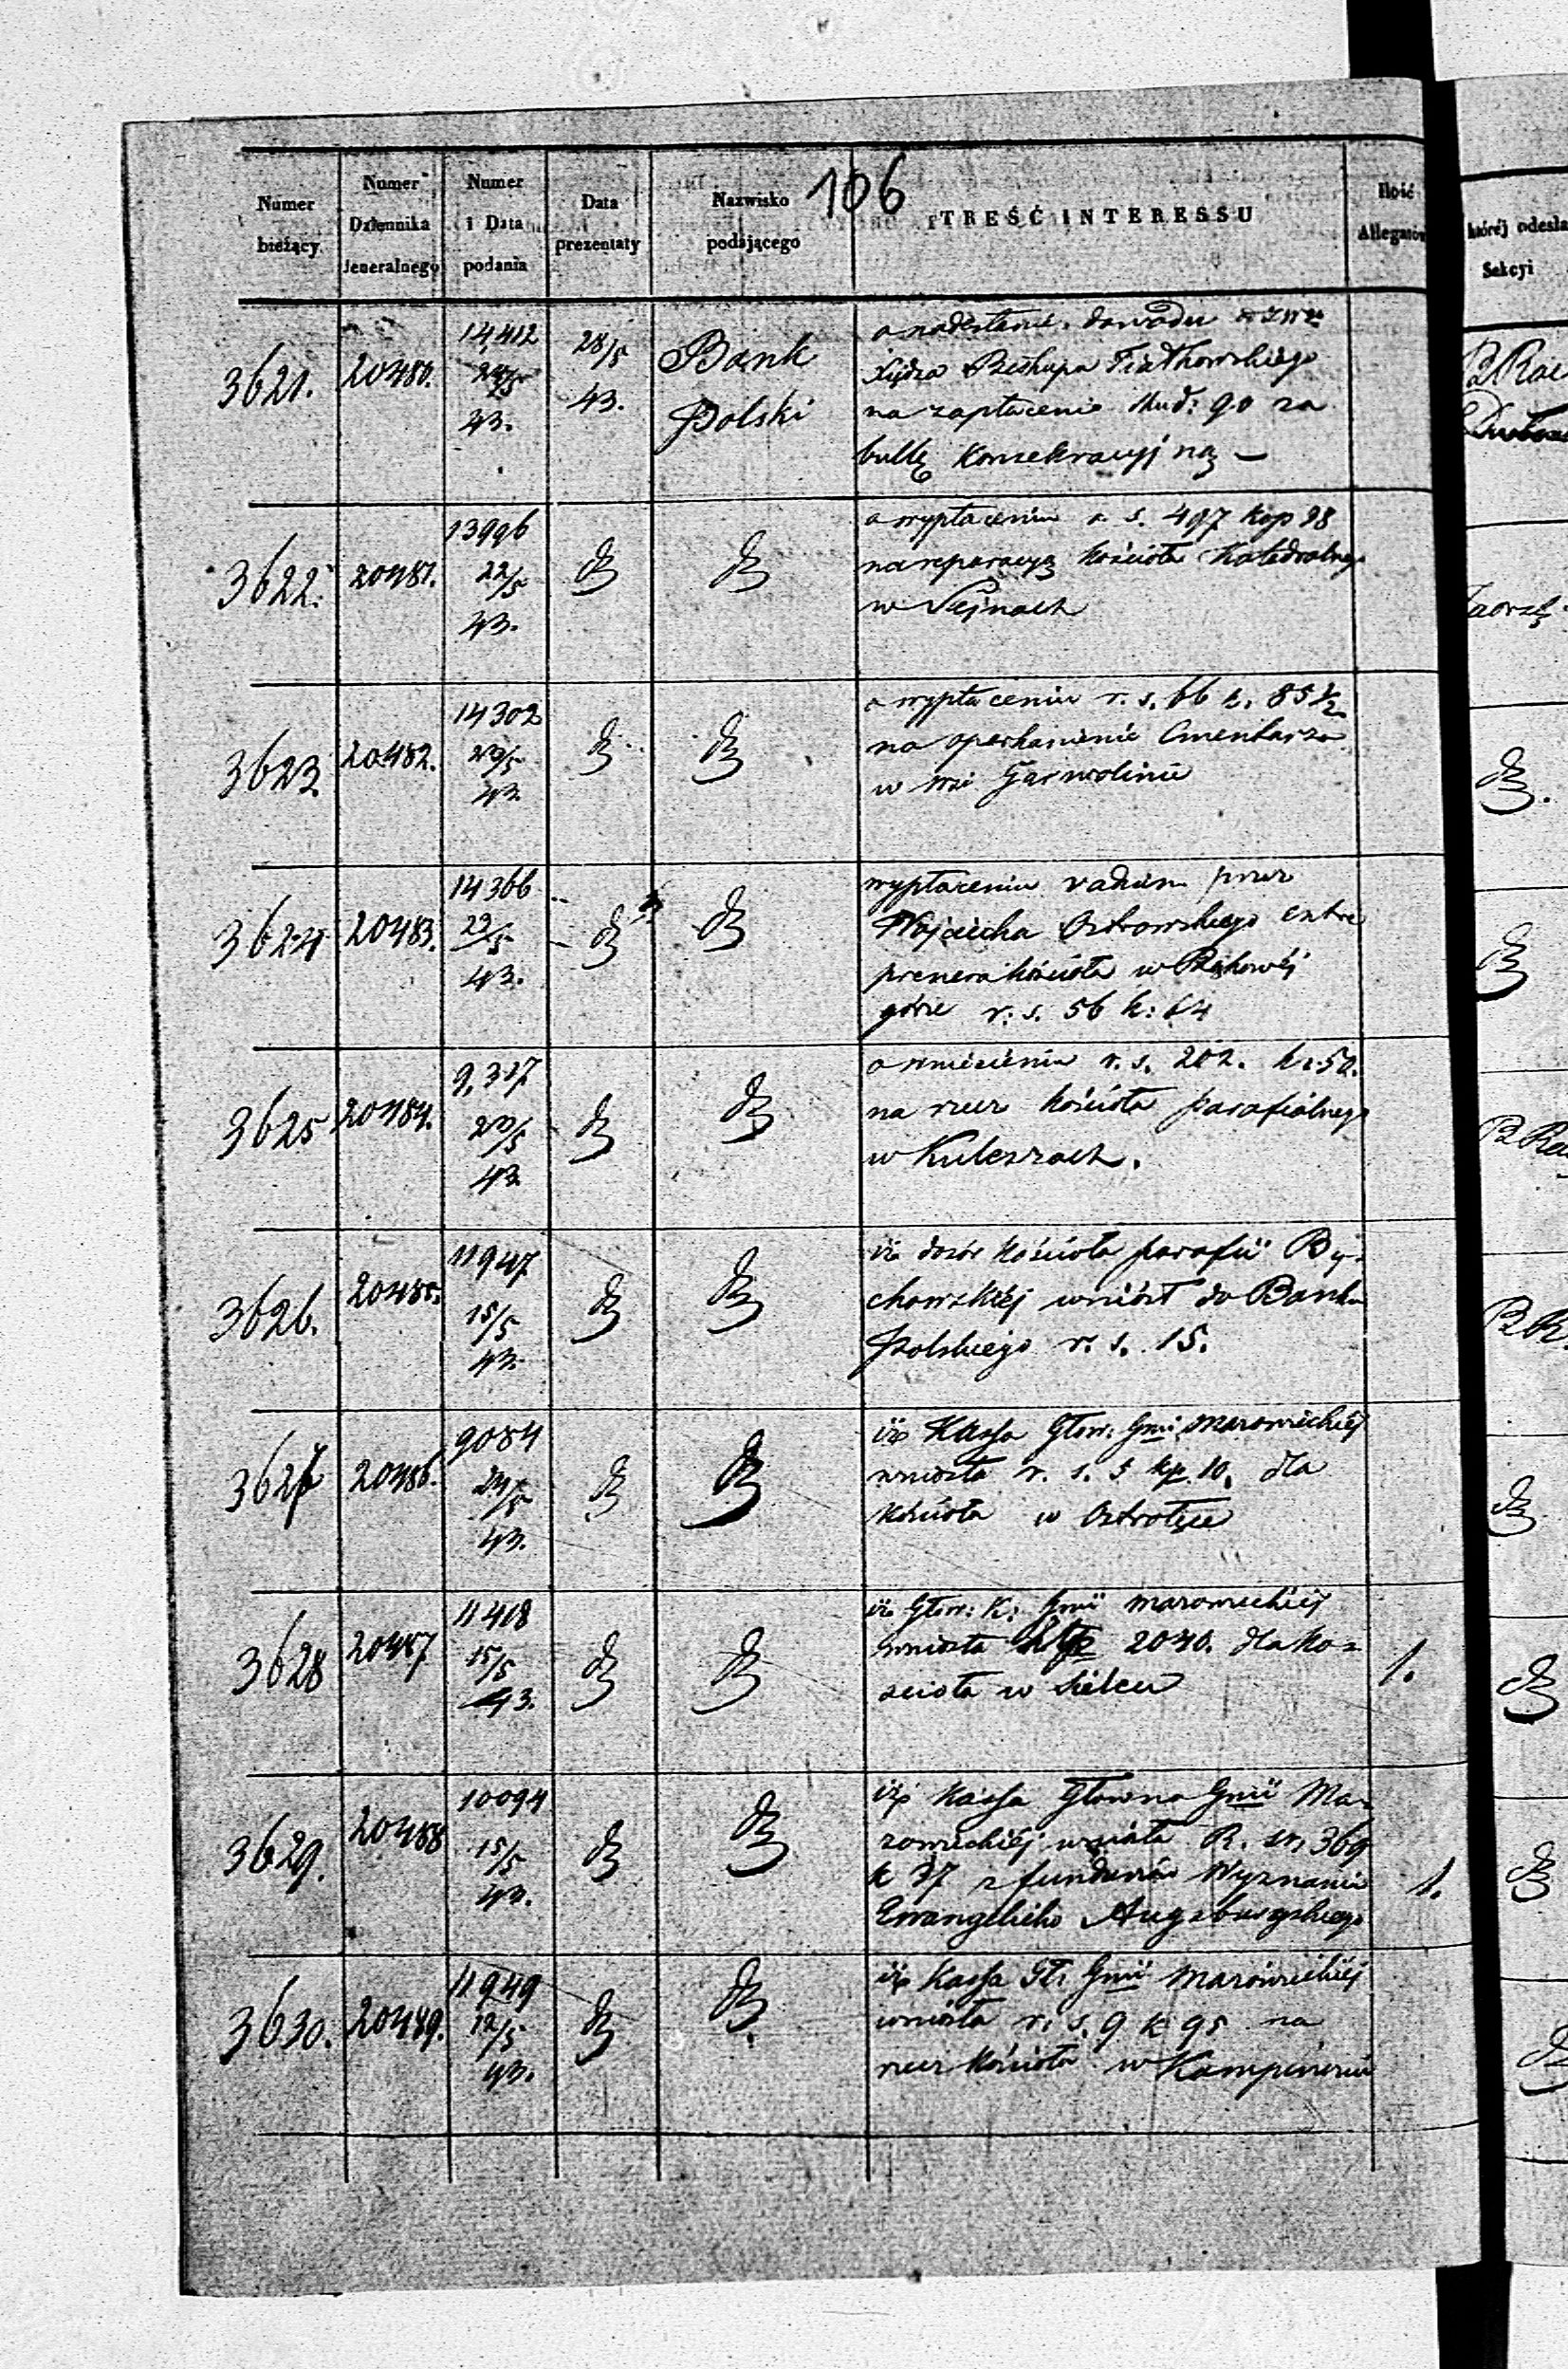 106
Numer bieżący
Numer Dziennika Jeneralnego
Numer i Data podania
Data prezentaty
Nazwisko podającego
TREŚĆ INTERESSU
Ilość Allegatów
której odesła
Sekcyi
3621. 20480. 14,412 43. 28/5 43. Bank Polski
o nadesłanie dowodu
Xiędza Biskupa Fiałkowskiego
na zapłacenie skud: 90 za
bullę Konsekracyjną —
3622. 20481. 13996 22/5 43. dto dto
o wypłaceniu r. s. 497 kop 98
na reparacyą kościoła Katedralnego
w Sejnach
3623. 20482. 14302 43. dto dto
o wypłaceniu r. s. 66 k. 85 1/2
na oparkanienie Cmentarza
w Garwolinie
3624 20483. 14366 23/5 43. dto dto
wypłaceniu vadium przez
Wojciecha Ostrowskiego entre
prenera kościoła w
górze r: s. 56 k: 64
3625 20484. 9,327 43. dto dto
o wniesieniu r. s. 202. k. 50.
na rzecz kościoła parafialnego
w Kuleszach.
3626. 20485. 11947 15/5 43. dto dto
iż dozór kościoła parafii By-
chowskiéj wniósł do Banku
Polskiego r. s. 15.
3627 20486. 9084 24/5 43. dto dto
iż Kassa Głow: Gnii Mazowieckiéj
wniosła r. s. 5 kp. 10. dla
kościoła w Ostrołęce
3628 20487 11418 15/5 43. dto dto
iż Głow: K: Gnii Mazowieckiéj
wniosła 2040. dla Ko-
scioła w Sielcu
1.
3629. 20488 10094 15/5 43. dto dto
iż Kassa Głowna Gnii Ma-
zowieckiéj wniosła R. sr. 369
k 37 z funduszów Wyznania
Ewangelicko Augsburgskiego
1.
3630. 20489. 11949 12/5 43. dto dto
iż Kassa Gł. Gnii Mazowieckiéj
wniosła r. s. 9 k 95 na
rzecz kościoła w Kampinosie